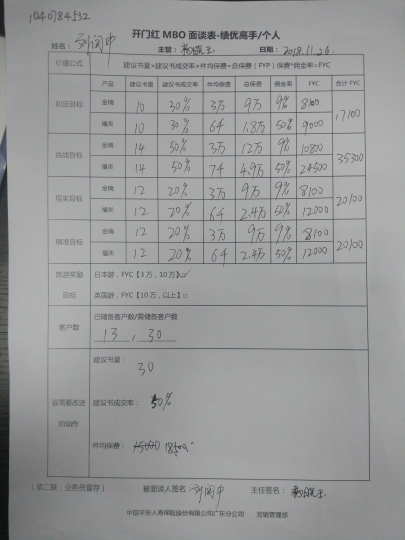 1040784532
开门红 MBO 面谈表-绩优高手/个人
姓名: 刘闰中 主管: 日期: 2018.11.26.
价值公式 建议书量×建议书成交率×件均保费=总保费(FYP)保费*佣金率=FYC
产品 建议书量 建议书成交率 件均保费 总保费 佣金率 FYC 合计 FYC
初定目标 金瑞 10 30% 3万 9万 9% 8100 17100
福类 10 30% 6千 1.8万 50% 9000
挑战目标 金瑞 14 50% 3万 12万 9% 10800 35300
福类 14 50% 7千 4.9万 50% 24500
现实目标 金瑞 12 20% 3万 9万 9% 8100 20100
福类 12 20% 6千 2.4万 50% 12000
精准目标 金瑞 12 20% 3万 9万 9% 8100 20100
福类 12 20% 6千 2.4万 50% 12000
旅游奖励 日本游,FYC【3万,10万】
目标 英国游,FYC【10万,以上】
客户数 已储备客户数/需储备客户数
13 , 30
建议书量:
30
需要改进 建议书成交率: 50%
的动作
件均保费: 15000
(第二联:业务员留存) 被面谈人签名: 刘闰中 主任签名:
中国平安人寿保险股份有限公司广东分公司 营销管理部